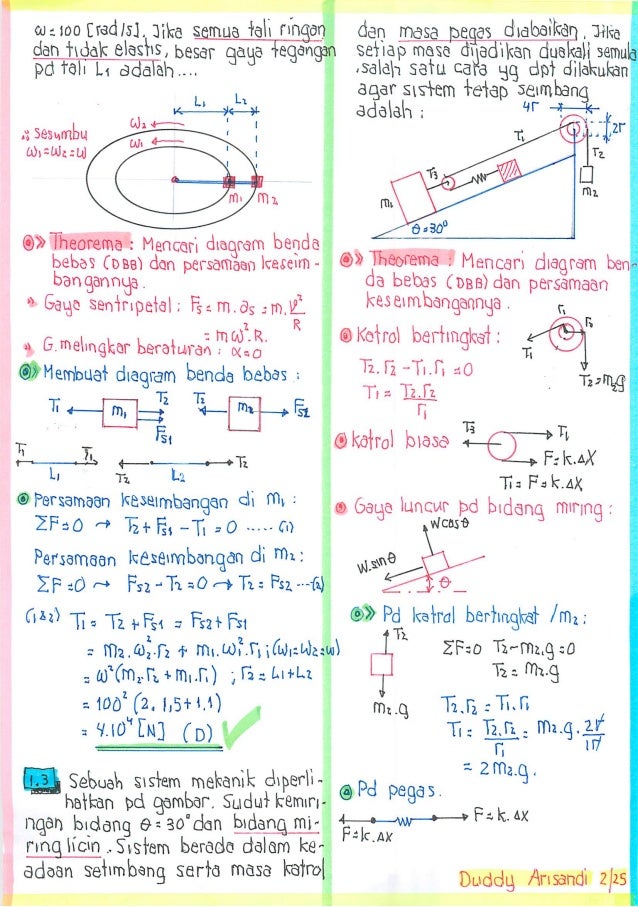 ω = 100 [rad/s]. Jika semua tali ringan
dan tidak elastis, besar gaya tegangan
pd tali L₁ adalah ....
L₁ L₂
ω₂
∴ Sesumbu
ω₁
ω₁=ω₂=ω
m₁ m₂
◎» Theorema : Mencari diagram benda
bebas (DBB) dan persamaan keseim-
bangannya.
Gaya sentripetal : Fs = m.as = m.V²/R
= mω².R.
G.melingkar beraturan : α=0
◎» Membuat diagram benda bebas :
T₁ m₁ T₂ Fs1 T₂ m₂ Fs2
T₁ T₁ L₁ T₂ L₂ T₂
◎ Persamaan keseimbangan di m₁ :
ΣF=0 → T₂ + Fs1 - T₁ = 0 ..... (1)
Persamaan keseimbangan di m₂ :
ΣF=0 → Fs2 - T₂ = 0 → T₂ = Fs2 ...(2)
(1&2) T₁ = T₂ + Fs1 = Fs2 + Fs1
= m₂.ω₂².r₂ + m₁.ω₁².r₁ ; (ω₁=ω₂=ω)
= ω²(m₂.r₂ + m₁.r₁) ; r₂ = L₁+L₂
= 100² (2.1,5+1.1)
= 4.10⁴ [N] (D)
1.3 Sebuah sistem mekanik diperli-
hatkan pd gambar. Sudut kemiri-
ngan bidang θ = 30° dan bidang mi-
ring licin. Sistem berada dalam ke-
adaan setimbang serta masa katrol
dan masa pegas diabaikan. Jika
setiap masa dijadikan duakali semula
, salah satu cara yg dpt dilakukan
agar sistem tetap seimbang
adalah :
4r
2r
T₁
T₂
T₃
m₁
m₂
θ=30°
◎» Theorema : Mencari diagram ben-
da bebas (DBB) dan persamaan
keseimbangannya.
◎ Katrol bertingkat :
r₁ r₂
T₁
T₂=m₂g
T₂.r₂ - T₁.r₁ = 0
T₁ = T₂.r₂/r₁
◎ katrol biasa
T₃ T₁
F=k.ΔX
T₁ = F = k.ΔX
◎ Gaya luncur pd bidang miring :
W cos θ
W.sin θ
θ
◎» Pd katrol bertingkat /m₂ :
T₂
m₂.g
ΣF=0 T₂-m₂.g=0
T₂ = m₂.g
T₂.r₂ = T₁.r₁
T₁ = T₂.r₂/r₁ = m₂.g.2r/1r
= 2m₂.g.
◎ Pd pegas.
F=k.ΔX
F=k.ΔX
Duddy Arisandi 2/25